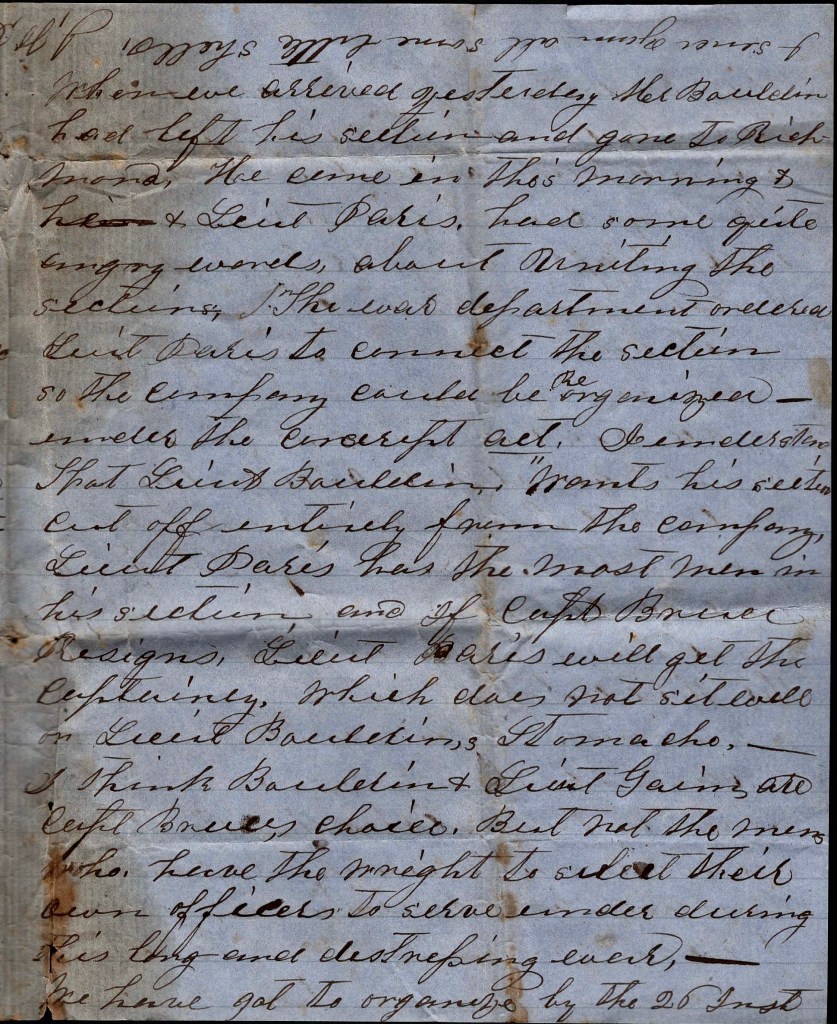 I send you all some little shells,
When we arrived yesterday Mr Bouldin
had left his section and gone to Rich-
mond, He come in this morning &
he & Leiut Paris, had some quite
angry words, about Uniting the
sections, The war department ordered
Leiut Paris to connect the section
so the company could be Re organized —
under the conscript act. I understand
that Leiut Bouldin, "wants his section
cut off entirely from the company,
Leiut Paris has the most men in
his section, and if Capt Bruce
Resigns, Leiut Paris will get the
Captaincy, which does not sit well
on Leiut Bouldin,s Stomache, —
I think Bouldin & Leiut Gain, are
Capt Bruce,s choice. But not the mens
who, have the wright to select their
own officers to serve under during
this long and distressing war, —
We have got to organize by the 26 Inst